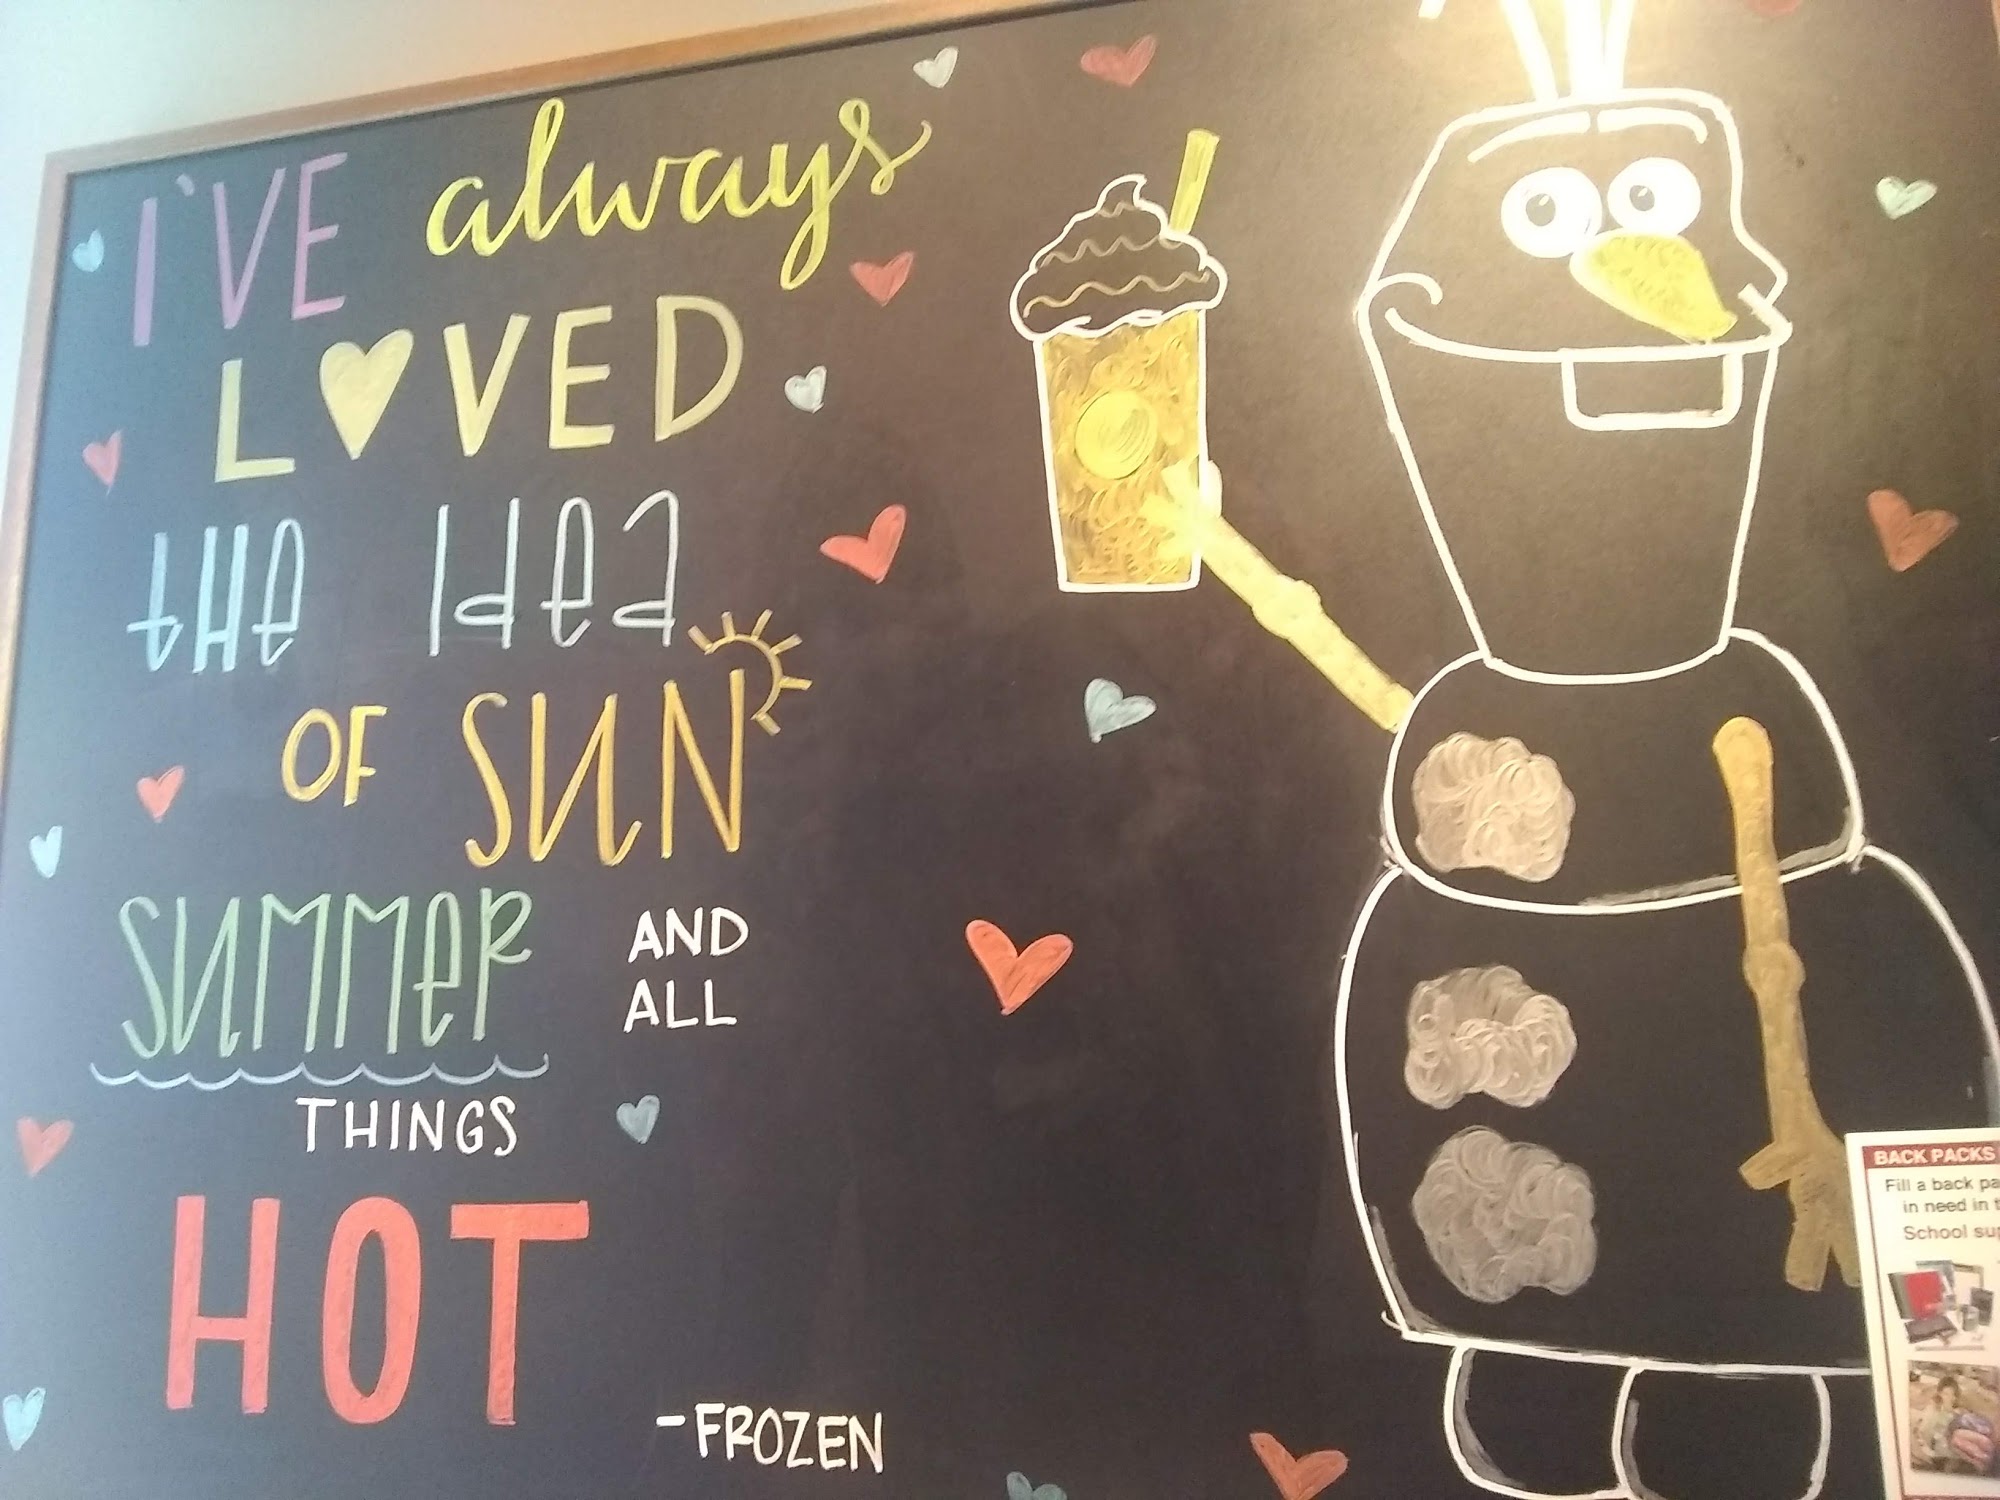 I'VE always
LOVED
tHe Idea
OF SUN
SUMMeR AND
ALL
THINGS
HOT
-FROZEN
BACK PACKS
Fill a back
in need in
School